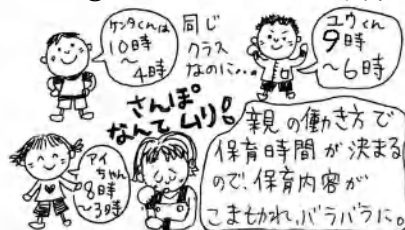 ケンタくんは
10時
～
4時
同じ
クラス
なのに…
ユウくん
9時
～6時
さんぽ
なんてムリ!
アイ
ちゃん
8時
～3時
親の働き方で
保育時間が決まる
ので、保育内容が
こま切れ、バラバラに。